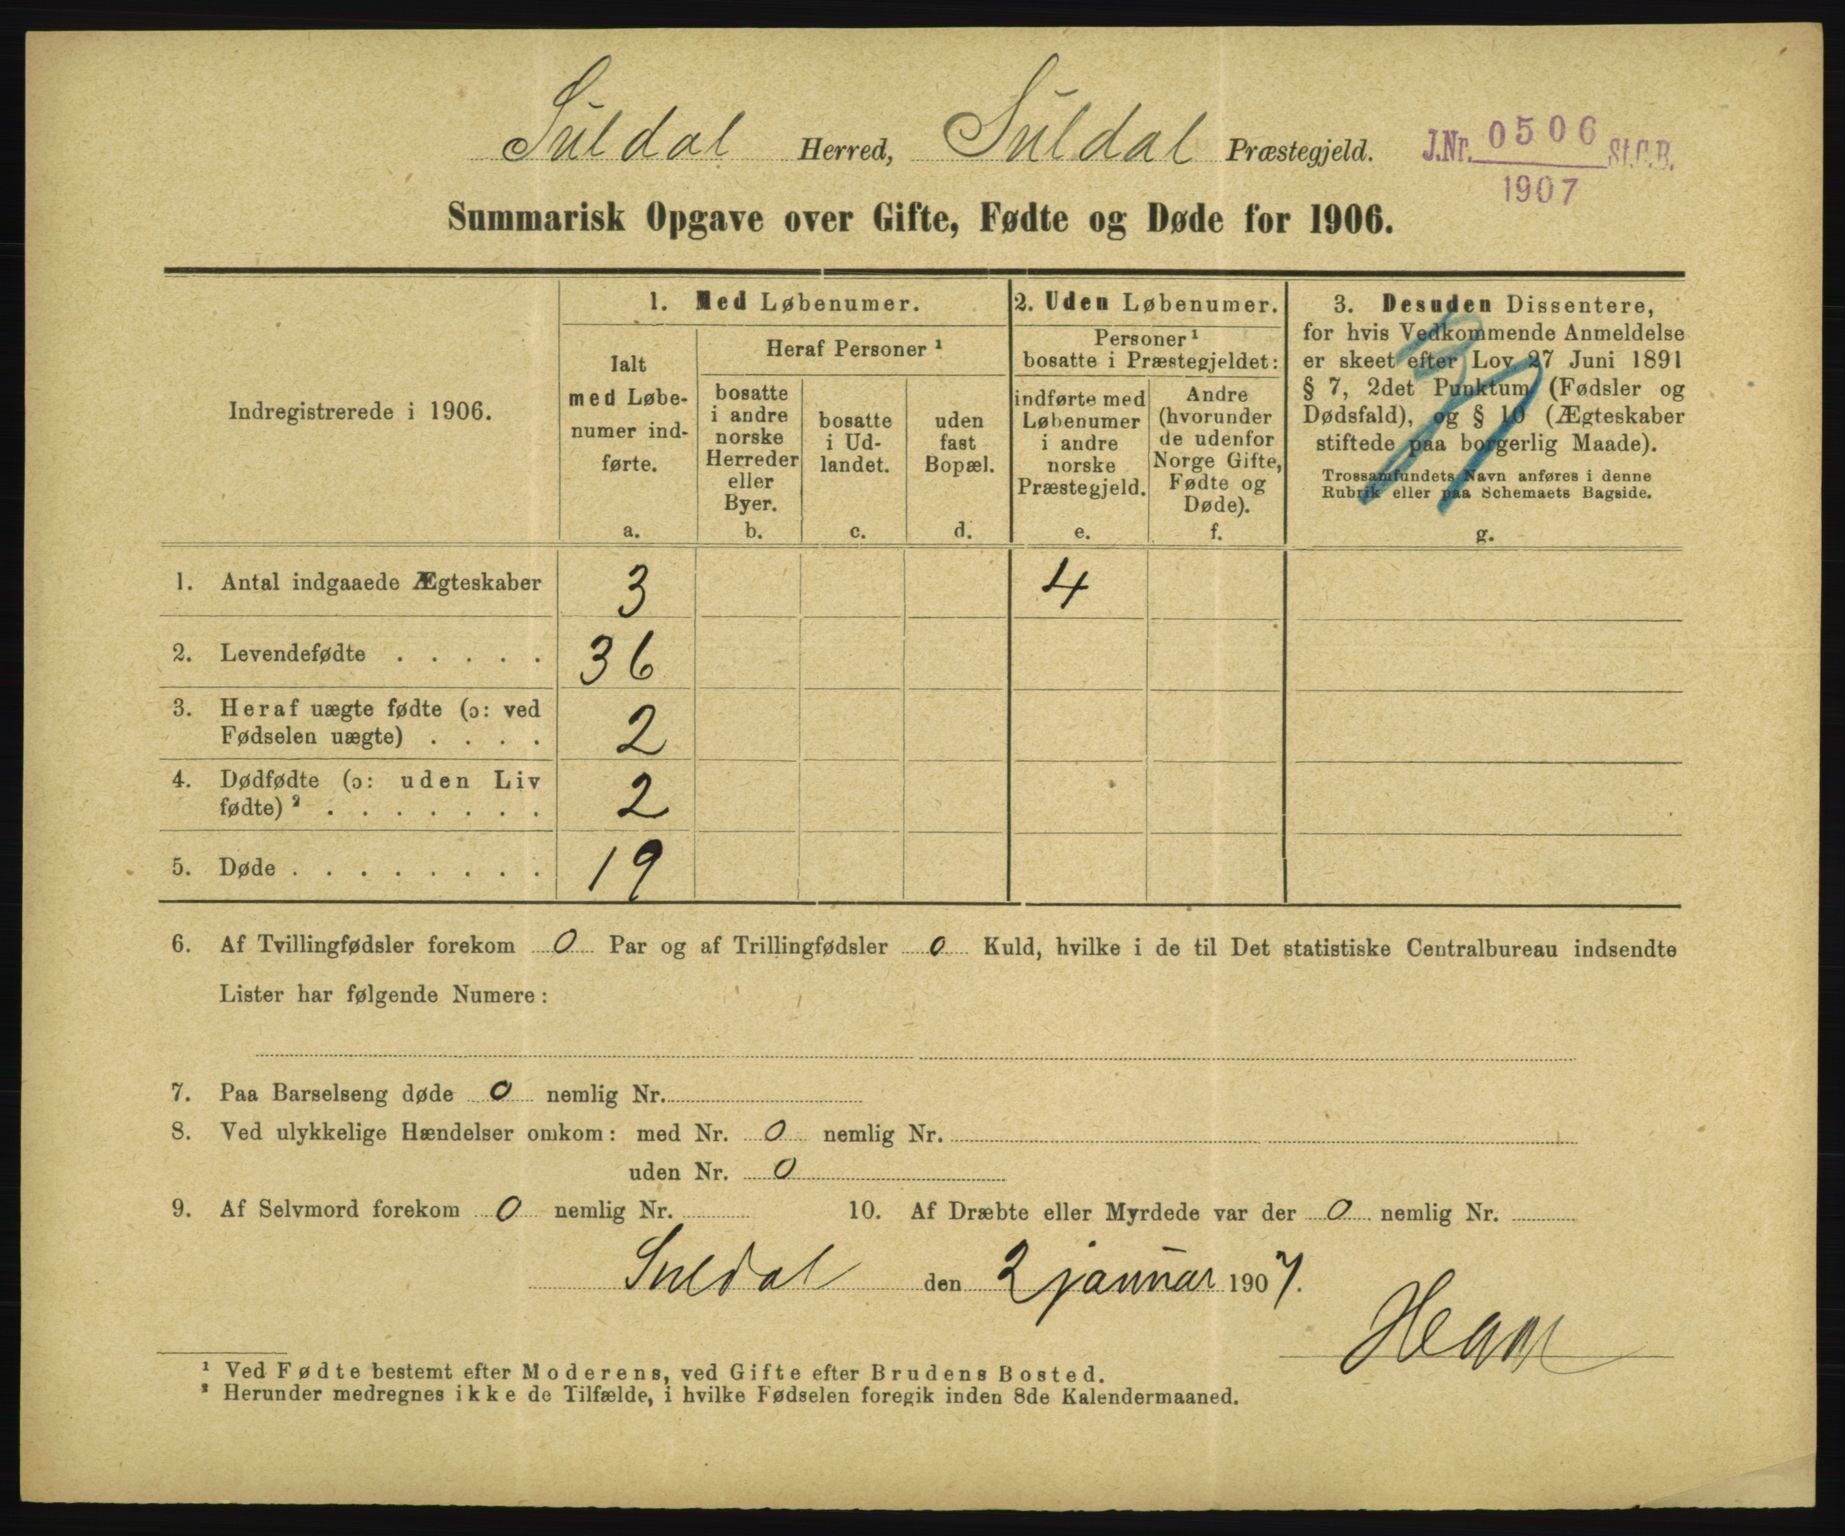 Suldal Herred, Suldal Præstegjeld. J.Nr. 0506 St.C.B.
1907
Summarisk Opgave over Gifte, Fødte og Døde for 1906.
Indregistrerede i 1906.
1. Med Løbenumer.
Ialt
med Løbe-
numer ind-
førte.
a.
Heraf Personer ¹
bosatte
i andre
norske
Herreder
eller
Byer.
b.
bosatte
i Ud-
landet.
c.
uden
fast
Bopæl.
d.
2. Uden Løbenumer.
Personer ¹
bosatte i Præstegjeldet:
indførte med
Løbenumer
i andre
norske
Præstegjeld.
e.
Andre
(hvorunder
de udenfor
Norge Gifte,
Fødte og
Døde).
f.
3. Desuden Dissentere,
for hvis Vedkommende Anmeldelse
er skeet efter Lov 27 Juni 1891
§ 7, 2det Punktum (Fødsler og
Dødsfald), og § 10 (Ægteskaber
stiftede paa borgerlig Maade).
Trossamfundets Navn anføres i denne
Rubrik eller paa Schemaets Bagside.
g.
1. Antal indgaaede Ægteskaber 3 4
2. Levendefødte . . . . . 36
3. Heraf uægte fødte (ɔ: ved
Fødselen uægte) . . . . 2
4. Dødfødte (ɔ: uden Liv
fødte) ² . . . . . . . 2
5. Døde . . . . . . . . 19
6. Af Tvillingfødsler forekom 0 Par og af Trillingfødsler 0 Kuld, hvilke i de til Det statistiske Centralbureau indsendte
Lister har følgende Numere:
7. Paa Barselseng døde 0 nemlig Nr.
8. Ved ulykkelige Hændelser omkom: med Nr. 0 nemlig Nr.
uden Nr. 0
9. Af Selvmord forekom 0 nemlig Nr. 10. Af Dræbte eller Myrdede var der 0 nemlig Nr.
Suldal den 2 januar 1907.
¹ Ved Fødte bestemt efter Moderens, ved Gifte efter Brudens Bosted.
² Herunder medregnes ikke de Tilfælde, i hvilke Fødselen foregik inden 8de Kalendermaaned.